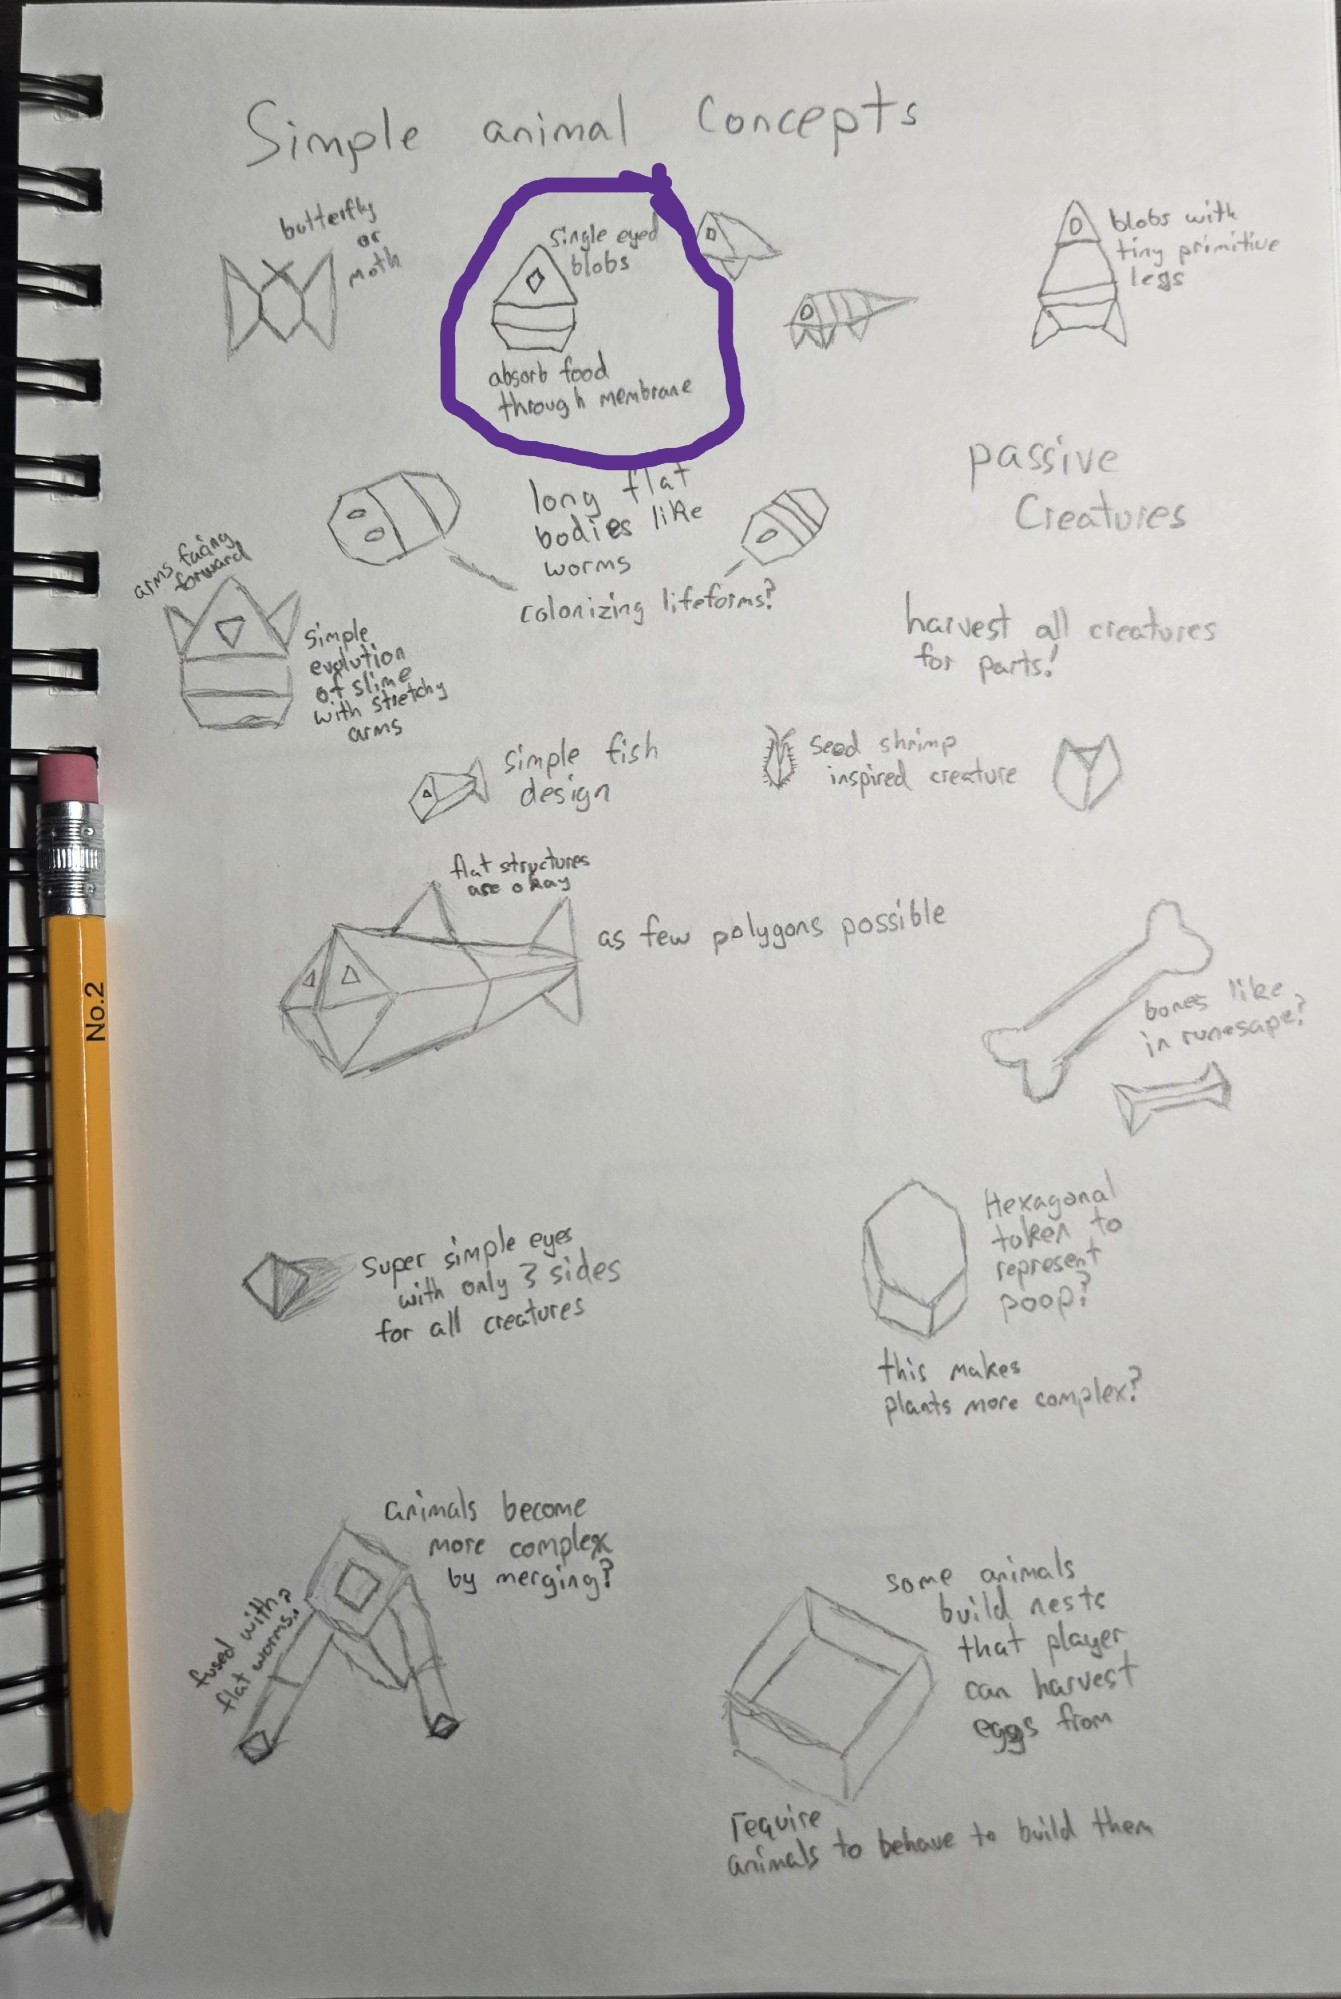 Simple animal Concepts
butterfly
or
moth
single eyed
blobs
absorb food
through membrane
blobs with
tiny primitive
legs
passive
Creatures
long flat
bodies like
worms
colonizing lifeforms?
arms facing
forward
simple
evolution
of slime
with stretchy
arms
harvest all creatures
for parts!
simple fish
design
seed shrimp
inspired creature
flat structures
are okay
as few polygons possible
bones like
in runesape?
Super simple eyes
with only 3 sides
for all creatures
Hexagonal
token to
represent
poop?
this makes
plants more complex?
animals become
more complex
by merging?
fused with
flat worms?
some animals
build nests
that player
can harvest
eggs from
require
animals to behave to build them
No.2